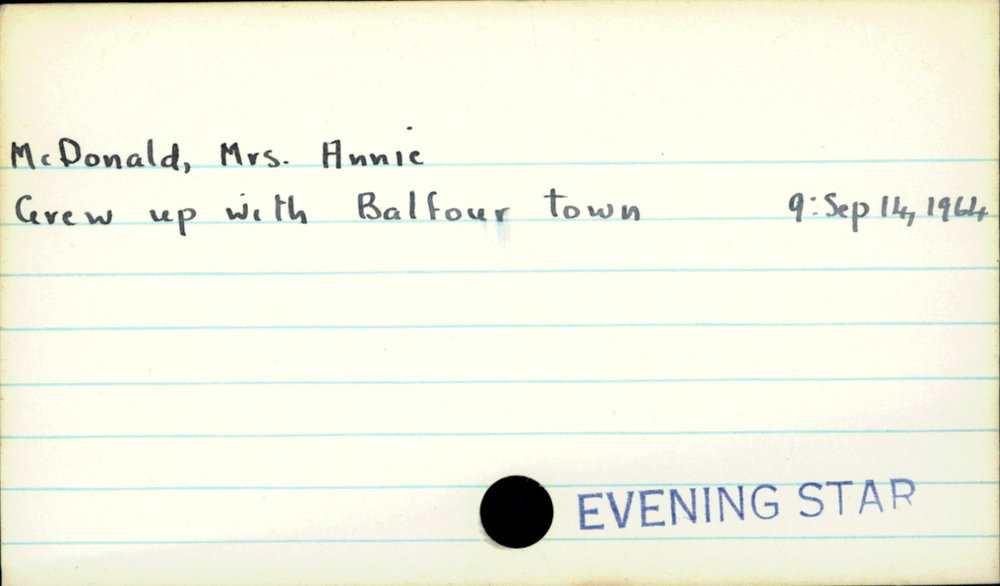 McDonald, Mrs. Annie
Grew up with Balfour town 9: Sep 14, 1964
EVENING STAR